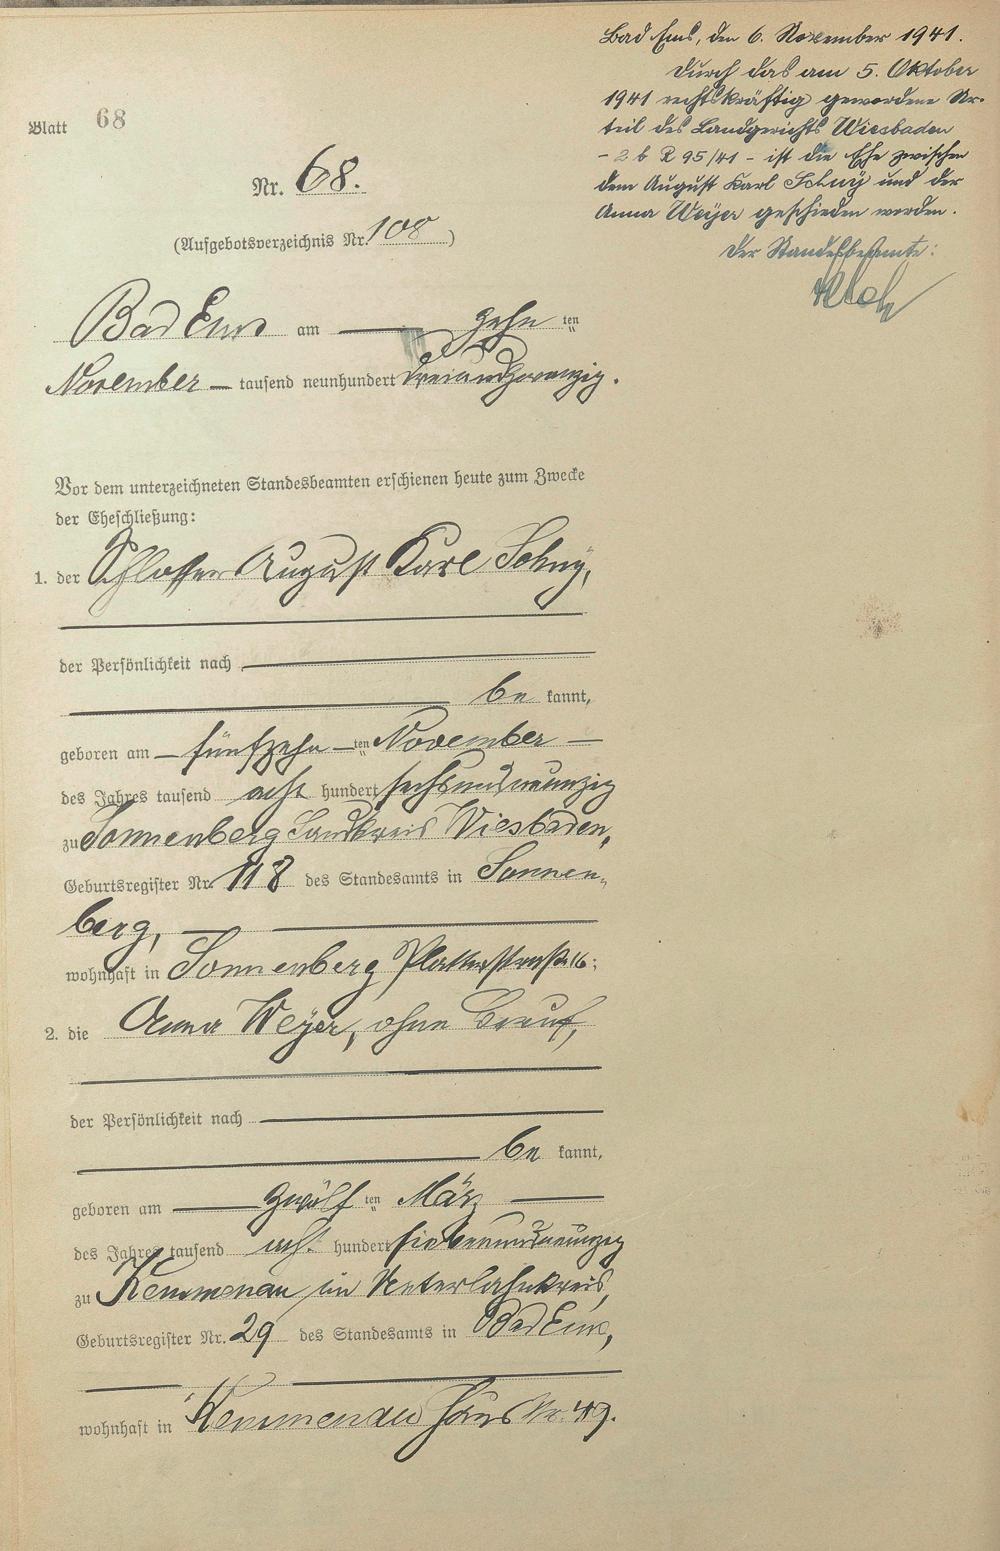 Bad Ems, den 6. November 1941.
Durch das am 5. Oktober
1941 rechtskräftig gewordene Ur-
teil des Landgerichts Wiesbaden
- 2 b R 95/41 - ist die Ehe zwischen
dem August Karl Schuÿ und der
Anna Weÿer geschieden worden.
Der Standesbeamte:
Blatt 68
Nr. 68.
(Aufgebotsverzeichnis Nr. 108)
Bad Ems am zehn ten
November tausend neunhundert dreiundzwanzig.
Vor dem unterzeichneten Standesbeamten erschienen heute zum Zwecke
der Eheschließung:
1. der Schlosser August Karl Schuÿ,
der Persönlichkeit nach
be kannt,
geboren am fünfzehn ten November
des Jahres tausend acht hundert sechsundneunzig
zu Sonnenberg Landkreis Wiesbaden,
Geburtsregister Nr. 118 des Standesamts in Sonnen-
berg,
wohnhaft in Sonnenberg Platterstraße 16;
2. die Anna Weÿer, ohne Beruf,
der Persönlichkeit nach
be kannt,
geboren am zwölf ten März
des Jahres tausend acht hundert siebenundneunzig
zu Kemmenau im Unterlahnkreis,
Geburtsregister Nr. 29 des Standesamts in Bad Ems,
wohnhaft in Kemmenau Haus Nr. 49.